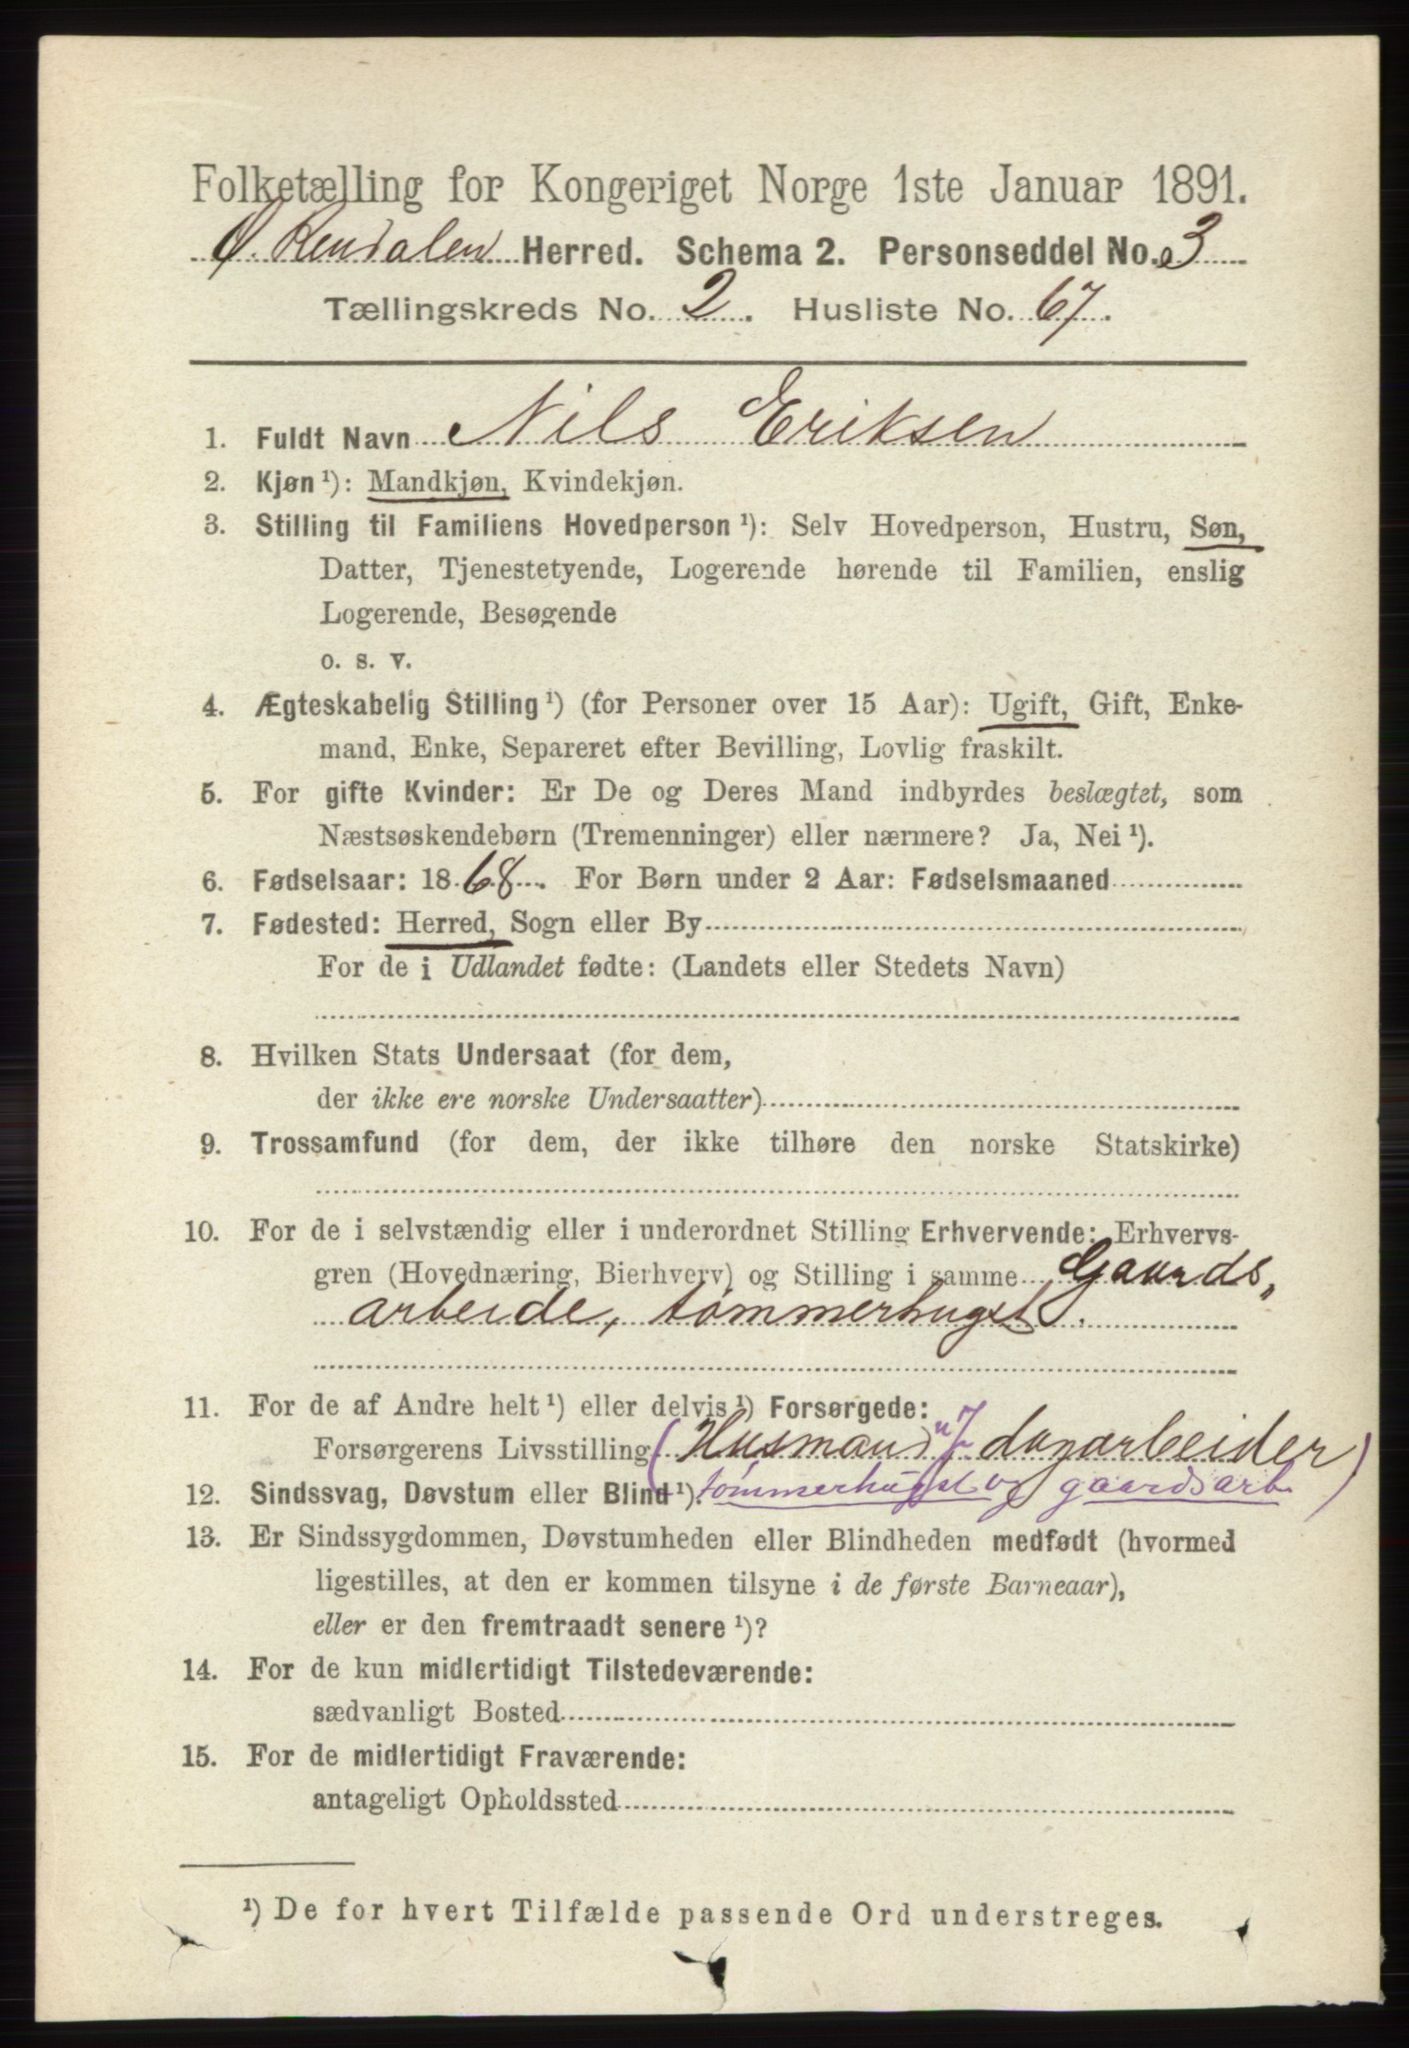 Folketælling for Kongeriget Norge 1ste Januar 1891.
Ø. Rendalen Herred. Schema 2. Personseddel No. 3
Tællingskreds No. 2. Husliste No. 67.
1. Fuldt Navn Nils Eriksen
2. Kjøn ¹): Mandkjøn, Kvindekjøn.
3. Stilling til Familiens Hovedperson ¹): Selv Hovedperson, Hustru, Søn,
Datter, Tjenestetyende, Logerende hørende til Familien, enslig
Logerende, Besøgende
o. s. v.
4. Ægteskabelig Stilling ¹) (for Personer over 15 Aar): Ugift, Gift, Enke-
mand, Enke, Separeret efter Bevilling, Lovlig fraskilt.
5. For gifte Kvinder: Er De og Deres Mand indbyrdes beslægtet, som
Næstsøskendebørn (Tremenninger) eller nærmere? Ja, Nei ¹).
6. Fødselsaar: 1868. For Børn under 2 Aar: Fødselsmaaned
7. Fødested: Herred, Sogn eller By
For de i Udlandet fødte: (Landets eller Stedets Navn)
8. Hvilken Stats Undersaat (for dem,
der ikke ere norske Undersaatter)
9. Trossamfund (for dem, der ikke tilhøre den norske Statskirke)
10. For de i selvstændig eller i underordnet Stilling Erhvervende: Erhvervs-
gren (Hovednæring, Bierhverv) og Stilling i samme Gaards„
arbeide, tømmerhugst.
11. For de af Andre helt ¹) eller delvis ¹) Forsørgede:
Forsørgerens Livsstilling (Husmand dagarbeider
12. Sindssvag, Døvstum eller Blind ¹). tømmerhugst og gaardsarb )
13. Er Sindssygdommen, Døvstumheden eller Blindheden medfødt (hvormed
ligestilles, at den er kommen tilsyne i de første Barneaar),
eller er den fremtraadt senere ¹)?
14. For de kun midlertidigt Tilstedeværende:
sædvanligt Bosted
15. For de midlertidigt Fraværende:
antageligt Opholdssted
¹) De for hvert Tilfælde passende Ord understreges.